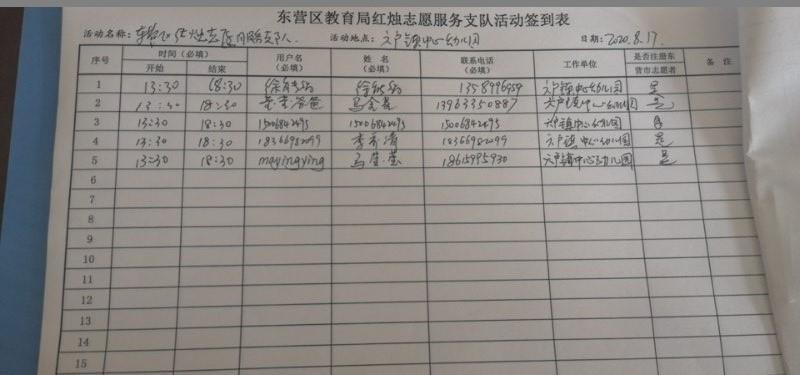 东营区教育局红烛志愿服务支队活动签到表
活动名称: 东营区红烛志愿服务支队. 活动地点: 六户镇中心幼儿园 日期: 2020.8.17.
序号 时间(必填) 开始 结束 用户名(必填) 姓名(必填) 联系电话(必填) 工作单位 是否注册东营市志愿者 备注
1 13:30 18:30 六户镇中心幼儿园 是
2 13:30 18:30 13963350887 六户镇中心幼儿园 是
3 13:30 18:30 15006842695 15006842695 15006842695 六户镇中心幼儿园 是
4 13:30 18:30 18366982099 18366982099 六户镇中心幼儿园 是
5 13:30 18:30 mayingying 18615995930 六户镇中心幼儿园 是
6
7
8
9
10
11
12
13
14
15